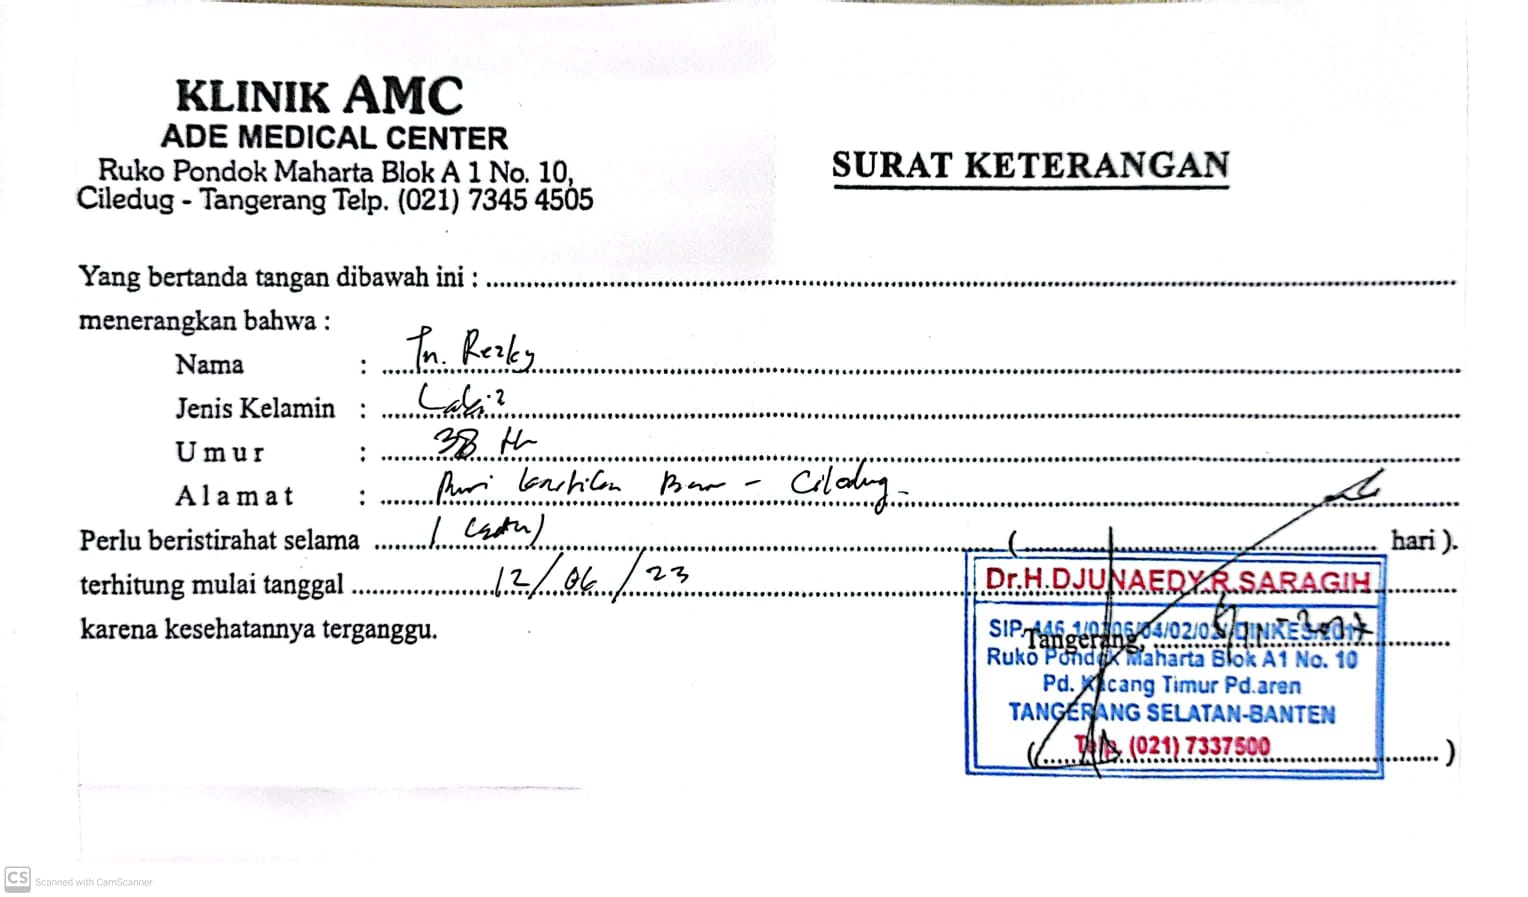 KLINIK AMC
ADE MEDICAL CENTER
Ruko Pondok Maharta Blok A 1 No. 10,
Ciledug - Tangerang Telp. (021) 7345 4505
SURAT KETERANGAN
Yang bertanda tangan dibawah ini :
menerangkan bahwa :
Nama : Tn. Rezky
Jenis Kelamin : Laki2
Umur : 38 th
Alamat : Puri Kartika Baru - Ciledug
Perlu beristirahat selama 1 (satu) ( hari ).
terhitung mulai tanggal 12/06/23
karena kesehatannya terganggu.
Dr.H.DJUNAEDY.R.SARAGIH
SIP.
Tangerang,
Ruko Pondok Maharta Blok A1 No. 10
Pd. Kacang Timur Pd.aren
TANGERANG SELATAN-BANTEN
Telp. (021) 7337500
CS Scanned with CamScanner